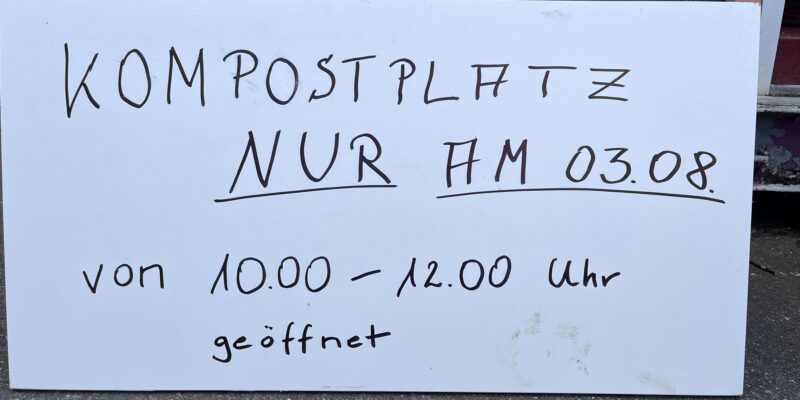 KOMPOSTPLATZ
NUR AM 03.08.
von 10.00 - 12.00 Uhr
geöffnet